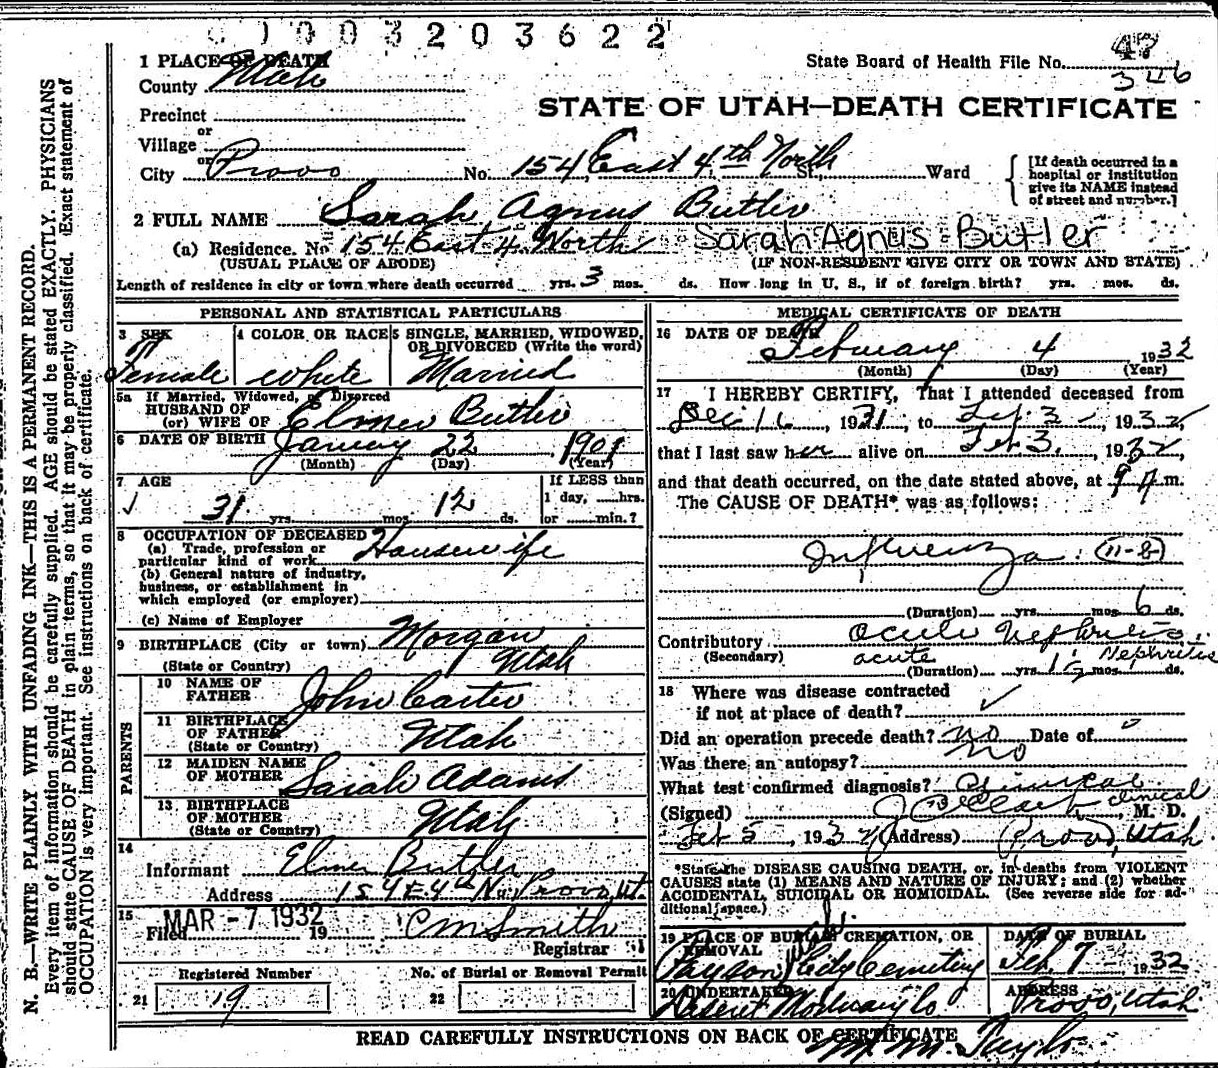 0 1 0 0 3 2 0 3 6 2 2
1 PLACE OF DEATH
County Utah
State Board of Health File No. 47
346
STATE OF UTAH—DEATH CERTIFICATE
Precinct
or
Village
or
City Provo No. 154 East 4th North St., Ward
[If death occurred in a hospital or institution give its NAME instead of street and number.]
2 FULL NAME Sarah Agnus Butler
(a) Residence. No. 154 East 4 North Sarah Agnus Butler
(USUAL PLACE OF ABODE) (IF NON-RESIDENT GIVE CITY OR TOWN AND STATE)
Length of residence in city or town where death occurred yrs. 3 mos. ds. How long in U. S., if of foreign birth? yrs. mos. ds.
PERSONAL AND STATISTICAL PARTICULARS
3 SEX 4 COLOR OR RACE 5 SINGLE, MARRIED, WIDOWED, OR DIVORCED (Write the word)
Female white Married
5a If Married, Widowed, or Divorced
HUSBAND OF
(or) WIFE OF Elmer Butler
6 DATE OF BIRTH January 22 1901
(Month) (Day) (Year)
7 AGE If LESS than
31 yrs. mos. 12 ds. 1 day, hrs.
or min.?
8 OCCUPATION OF DECEASED
(a) Trade, profession or
particular kind of work Housewife
(b) General nature of industry,
business, or establishment in
which employed (or employer)
(c) Name of Employer
9 BIRTHPLACE (City or town) Morgan
(State or Country) Utah
PARENTS
10 NAME OF
FATHER John Carter
11 BIRTHPLACE
OF FATHER Utah
(State or Country)
12 MAIDEN NAME
OF MOTHER Sarah Adams
13 BIRTHPLACE
OF MOTHER Utah
(State or Country)
14
Informant Elmer Butler
Address 154 E. 4th N. Provo, Ut.
15
Filed MAR -7 1932 19 C M Smith
Registrar
Registered Number No. of Burial or Removal Permit
21 19 22
MEDICAL CERTIFICATE OF DEATH
16 DATE OF DEATH
February 4 1932
(Month) (Day) (Year)
17 I HEREBY CERTIFY, That I attended deceased from
Dec 16, 1931, to Feb 3, 1932,
that I last saw her alive on Feb 3, 1932,
and that death occurred, on the date stated above, at 9 A m.
The CAUSE OF DEATH* was as follows:
Influenza (11-8)
(Duration) yrs. mos. 6 ds.
Contributory Acute Nephritis
(Secondary) acute Nephritis
(Duration) yrs. 1½ mos. ds.
18 Where was disease contracted
if not at place of death?
Did an operation precede death? no Date of
Was there an autopsy? no
What test confirmed diagnosis? Clinical
clinical
(Signed) M. D.
Feb 5, 1932 (Address) Provo, Utah
*State the DISEASE CAUSING DEATH, or, in deaths from VIOLENT
CAUSES state (1) MEANS AND NATURE OF INJURY; and (2) whether
ACCIDENTAL, SUICIDAL OR HOMICIDAL. (See reverse side for additional space.)
19 PLACE OF BURIAL, CREMATION, OR REMOVAL DATE OF BURIAL
Payson City Cemetery Feb. 7 1932
20 UNDERTAKER ADDRESS
Deseret Mortuary Co Provo, Utah
READ CAREFULLY INSTRUCTIONS ON BACK OF CERTIFICATE
N. B.—WRITE PLAINLY WITH UNFADING INK—THIS IS A PERMANENT RECORD.
Every item of information should be carefully supplied. AGE should be stated EXACTLY. PHYSICIANS
should state CAUSE OF DEATH in plain terms, so that it may be properly classified. Exact statement of
OCCUPATION is very important. See instructions on back of certificate.